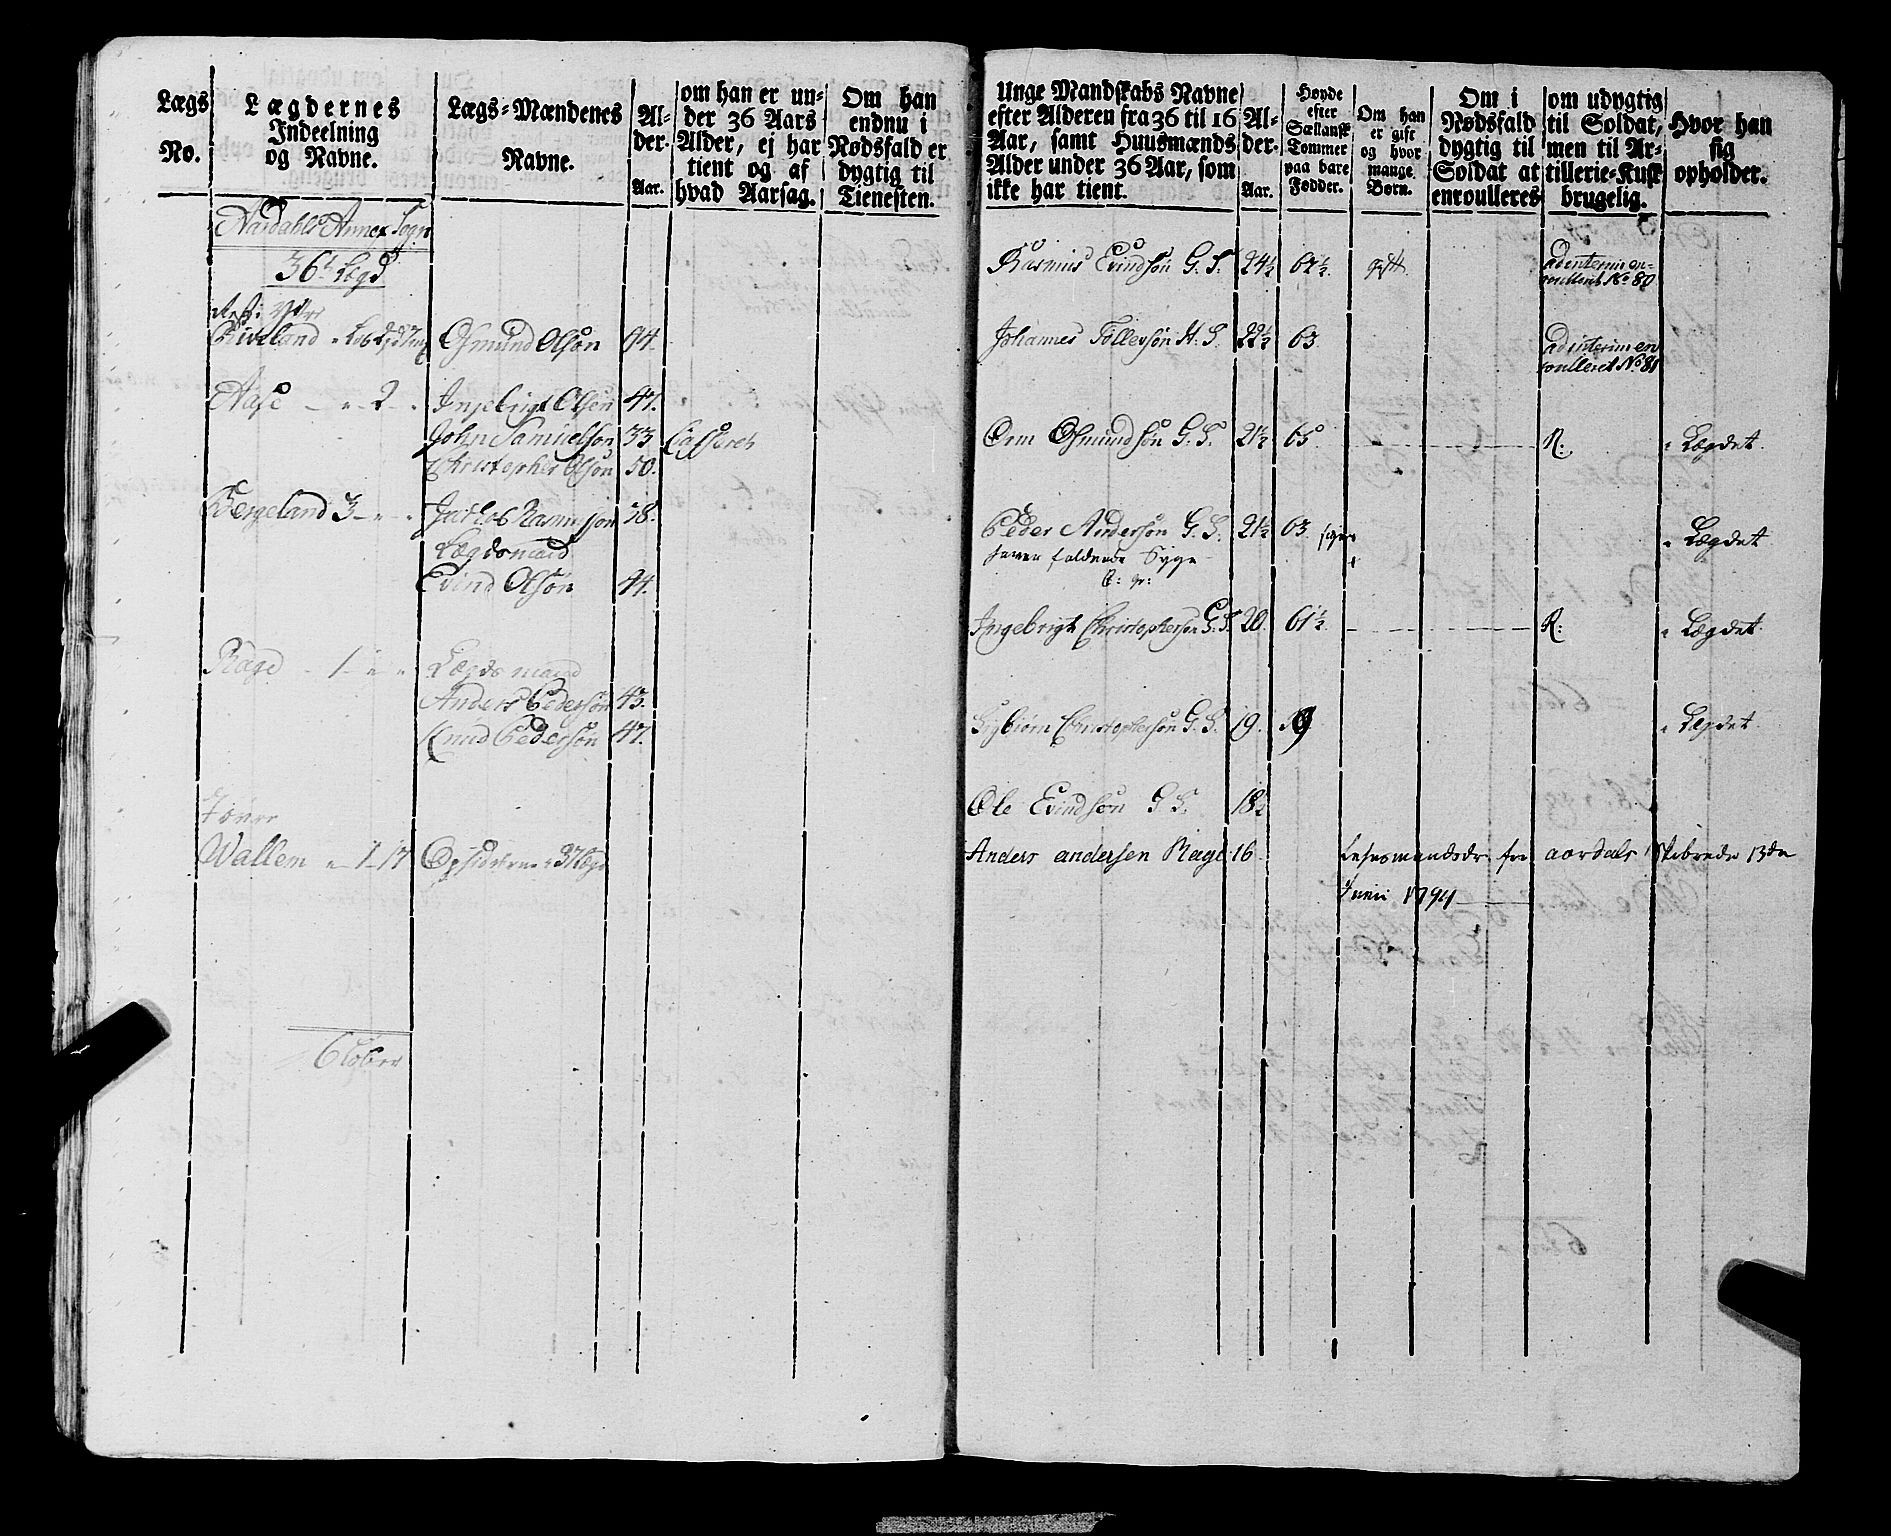 Lægs
No.
Lægdernes
Indeelning
og Navne.
Lægs-Mændenes
Navne.
Al-
der.
Aar.
om han er un-
der 36 Aars
Alder, ej har
tient og af
hvad Aarsag.
Om han
endnu i
Nødsfald er
dygtig til
Tienesten.
Aardahls Annex Sogn
36t Lægd
Riveland
Osmund Olsøn 94.
Aase 2
Ingebrigt Olsøn 47.
John Samuelsøn 33 Casseret
Christopher Olsøn 50.
Bergeland 3
Jachob Rasmussøn 38.
Lægdsmand
Evind Olsøn 44.
Rage 1
Lægdsmand
Anders Pedersøn 43.
Knud Pedersøn 47.
Wallem 1 17 Opsidderne 37 Lægd
Unge Mandskabs Navne
efter Alderen fra 36 til 16
Aar, samt Huusmænds
Alder under 36 Aar, som
ikke har tient.
Al-
der.
Aar.
Høyde
efter
Siællansk
Tommer
paa bare
Fødder.
Om han
er gift
og hvor
mange
Børn.
Om i
Nødsfald
dygtig til
Soldat at
enroulleres
om udygtig
til Soldat,
men til Ar-
tillerie-Kusk
brugelig.
Hvor han
sig
opholder.
Rasmus Evindsøn G. S. 24½ gift ad interim en-
roulleret No 80
Johannes Tollersøn H. S. 22½ 63 ad interim en
roulleret No 81
Orm Osmundsøn G. S. 21½ 65 R. Lægdet
Peder Andersøn G. S. 21½ 63 Lægdet
haver faldende Syge
Ingebrigt Christophersøn G. S. 20. 61½ R: Lægdet
Christophersøn G. S. 19. Lægdet
Ole Evindsøn G S. 18½
Anders andersen Rage 16 aardals Skibrede 13de
Junii 1794